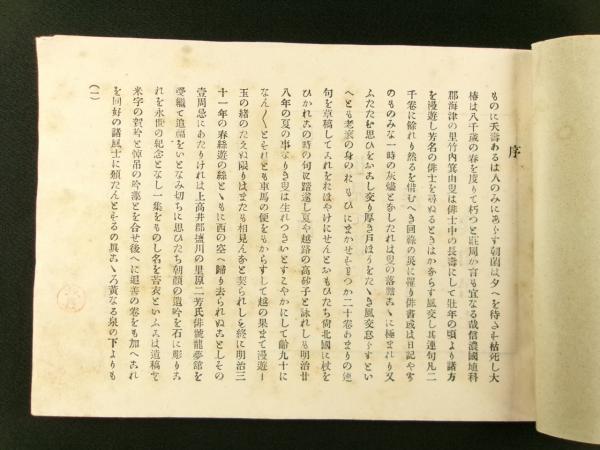 序
ものに天壽あるは人のみにあらす朝菌は夕へを待さす枯死し大
椿は八千歳の春を度りて朽つと莊周か言も宜なる哉信濃國埴科
郡海津の里竹内箕山叟は俳士中の長壽にして壯年の頃より諸方
を漫遊し芳名の俳士を尋ぬるときはかならす風交し其連句凡二
千卷に餘れり然るを惜むへき回祿の災に罹り俳書或は日記やう
のものみな一時の灰燼と奈したれは叟の落膽こゝに極まれり又
ふたたを思ひをおこし交り厚き戸ほうをたゝき風交怠らすとい
へとも老衰の身のれもひにまかせすもつか二十卷あまりの連
句を草稿してこれをれはやけにせんとおもひたち尚北國に杖を
ひかれこの時の句に踏迷し夏や越路の高砂子と詠れしも明治廿
八年の夏の事なりき叟は生れつきいとすこやかにして齡九十に
なん〳〵とそれとも車馬の便をもからすして越の果まて漫遊し
玉の緒のたえぬ限りはまたも相見んなと契られしを終に明治三
十一年の春絲遊の絲とゝもに西の空へ歸り去られぬことしその
壹周忌にあたりけれは上高井郡福川の里原二芳氏俳號龍夢舘を
愛繼て追福をいとなみ切ちに思ひたち朝顔の遺吟を石に彫りこ
れを永世の紀念となし一集をものし名を苔衣といふこは遺稿を
米字の賀吟と悼吊の吟藻とを合せ後へに追善の卷をも加へこれ
を同好の諸風士に頒たんとするの眞こゝろ黄なる泉の下よりも
(一)